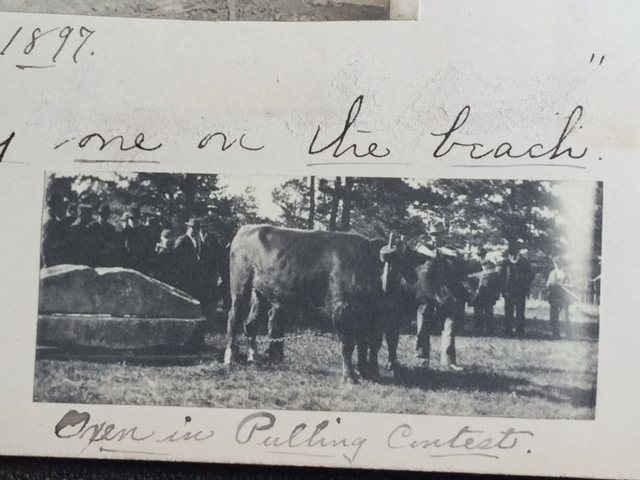 1897. "
one on the beach.
Oxen in Pulling Contest.